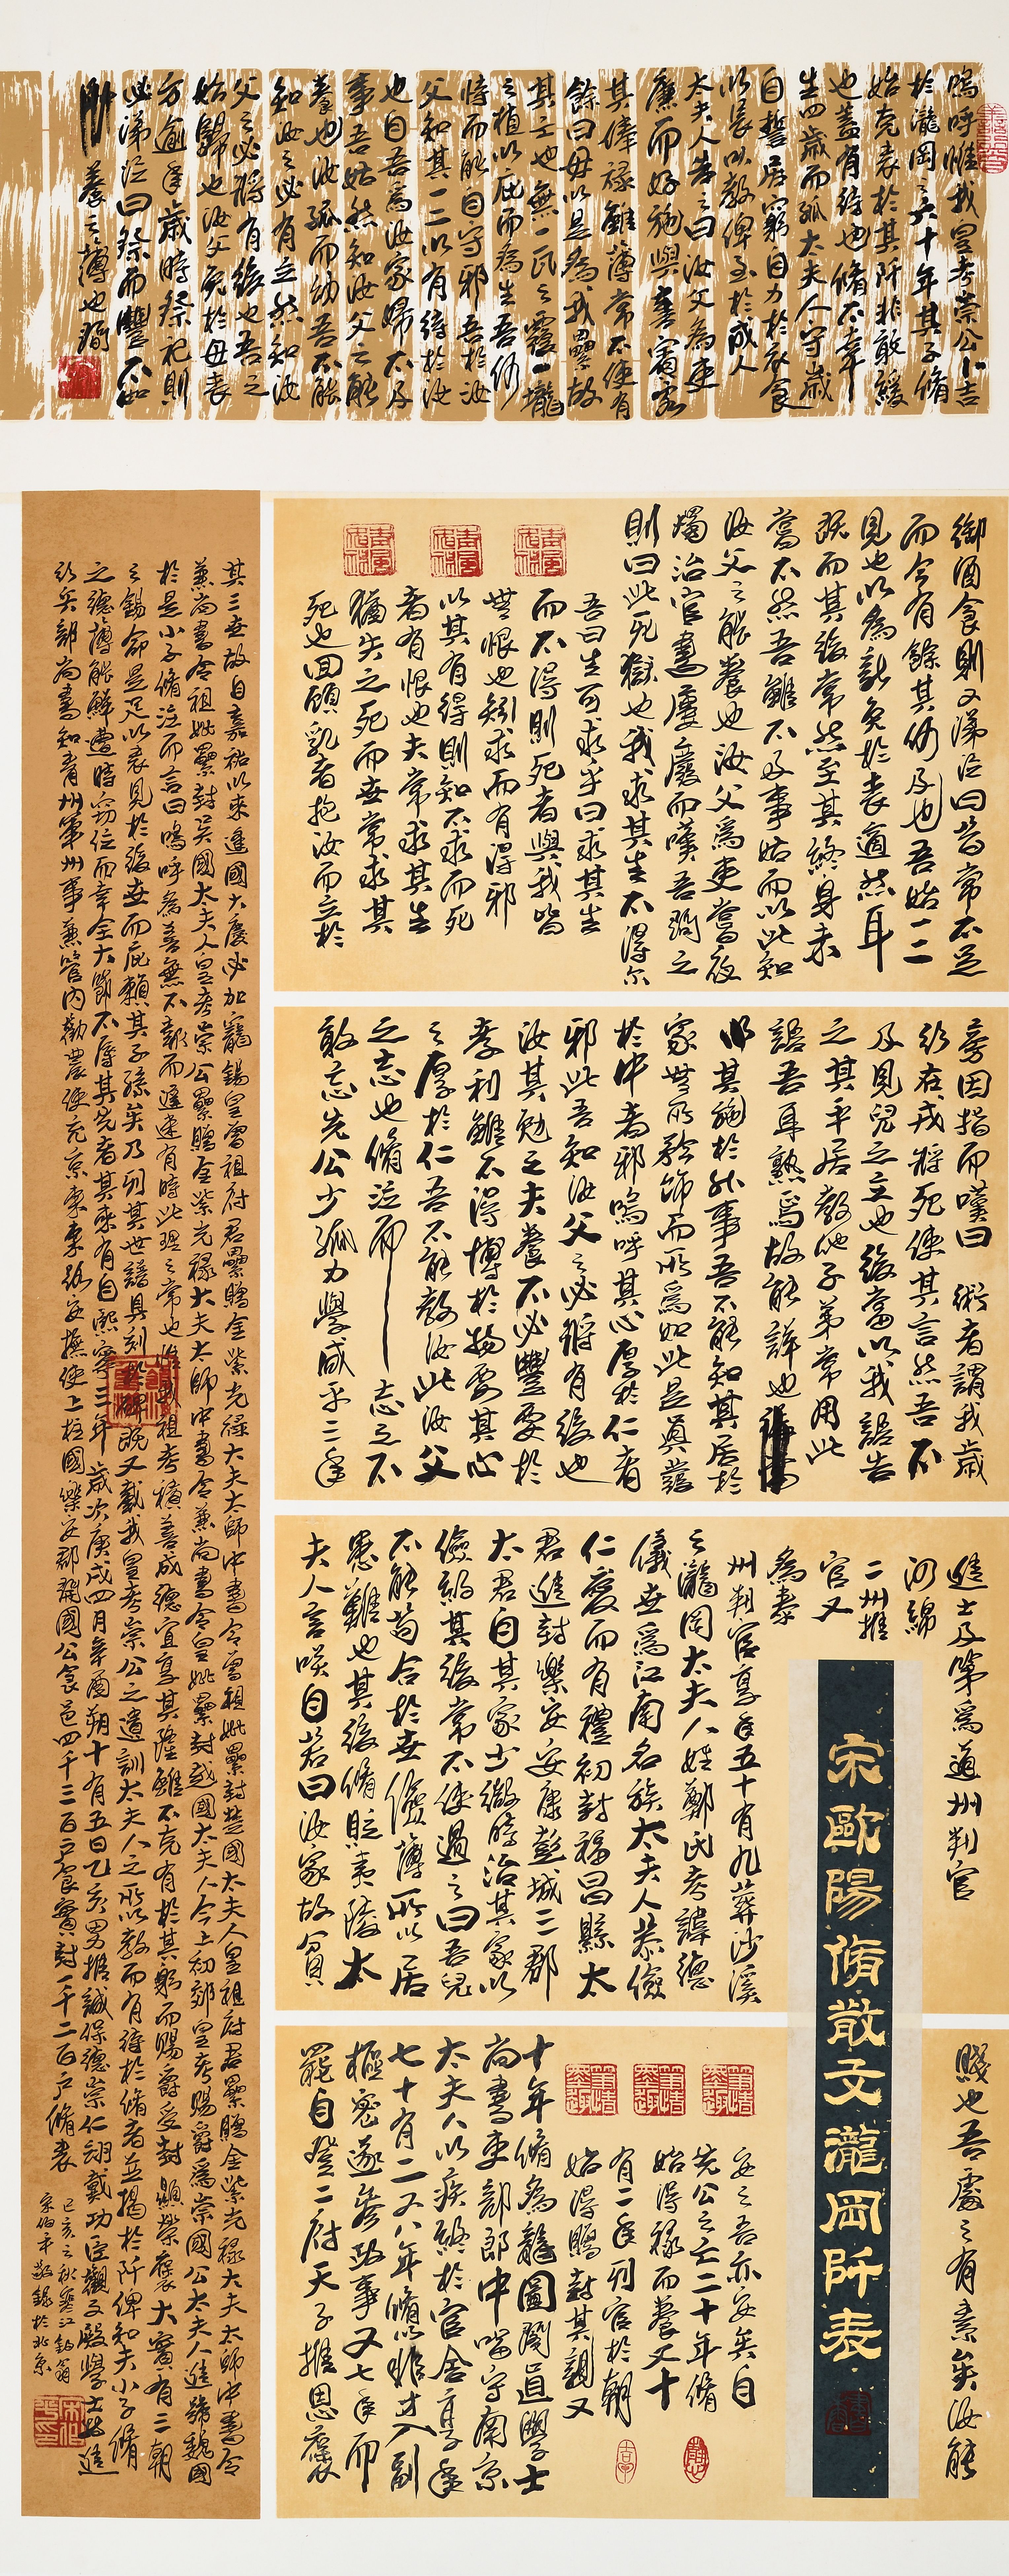 嗚呼惟我皇考崇公卜吉
於瀧岡之六十年其子脩
始克表於其阡非敢緩
也蓋有待也脩不幸
生四歲而孤太夫人守
自誓居窮自力於衣食
以長以教俾至於成人
太夫人告之曰汝父為吏
廉而好施與喜賓客
其俸祿雖薄常不使有
餘曰毋以是為我累故
其亡也無一瓦之覆一壠
之植以庇而為生吾何
恃而能自守邪吾於汝
父知其一二以有待於汝
也自吾為汝家婦不及
事吾姑然知汝父之能
養也汝孤而幼吾不能
知汝之必有立然知汝
父之必將有後也吾之
始歸也汝父免於母喪
方逾年歲時祭祀則
必涕泣曰祭而豐不如
養之薄也間
御酒食則又涕泣曰昔常不足
而今有餘其何及也吾始一二
見也以為新免於喪適然耳
既而其後常然至其終身未
嘗不然吾雖不及事姑而以此知
汝父之能養也汝父為吏嘗夜
燭治官書屢廢而嘆吾問之
則曰此死獄也我求其生不得爾
吾曰生可求乎曰求其生
而不得則死者與我皆
無恨也矧求而有得邪
以其有得則知不求而死
者有恨也夫常求其生
猶失之死而世常求其
死也回顧乳者抱汝而立於
旁因指而嘆曰 術者謂我歲
行在戌將死使其言然吾不
及見兒之立也後當以我語告
之其平居教他子弟常用此
語吾耳熟焉故能詳也
其施於外事吾不能知其居於
家無所矜飾而所為如此是真發
於中者邪嗚呼其心厚於仁者
邪此吾知汝父之必將有後也
汝其勉之夫養不必豐要於
孝利雖不得博於物要其心
之厚於仁吾不能教汝此汝父
之志也脩泣而 志之不
敢忘先公少孤力學咸平三年
進士及第為道州判官
泗綿
二州推
官又
為泰
州判官享年五十有九葬沙溪
之瀧岡太夫人姓鄭氏考諱德
儀世為江南名族太夫人恭儉
仁愛而有禮初封福昌縣太
君進封樂安安康彭城三郡
太君自其家少微時治其家以
儉約其後常不使過之曰吾兒
不能苟合於世儉薄所以居
患難也其後脩貶夷陵太
夫人言笑自若曰汝家故貧
賤也吾處之有素矣汝能
宋歐陽脩散文瀧岡阡表
安之吾亦安矣自
先公之亡二十年脩
始得祿而養又十
有二年列官於朝
始得贈封其親又
十年脩為龍圖閣直學士
尚書吏部郎中留守南京
太夫人以疾終於官舍享年
七十有二又八年脩以非才入副
樞密遂參政事又七年而
罷自登二府天子推恩褒
其三世故自嘉祐以來逢國大慶必加寵錫皇曾祖府君累贈金紫光祿大夫太師中書令曾祖妣累封楚國太夫人皇祖府君累贈金紫光祿大夫太師中書令
兼尚書令祖妣累封吳國太夫人皇考崇公累贈金紫光祿大夫太師中書令兼尚書令皇妣累封越國太夫人今上初郊皇考賜爵為崇國公太夫人進號魏國
於是小子脩泣而言曰嗚呼為善無不報而遲速有時此理之常也惟我祖考積善成德宜享其隆雖不克有於其躬而賜爵受封顯榮褒大實有三朝
之錫命是足以表見於後世而庇賴其子孫矣乃列其世譜具刻於碑既又載我皇考崇公之遺訓太夫人之所以教而有待於脩者並揭於阡俾知夫小子脩
之德薄能鮮遭時竊位而幸全大節不辱其先者其來有自熙寧三年歲次庚戌四月辛酉朔十有五日乙亥男推誠保德崇仁翊戴功臣觀文殿學士特進
行兵部尚書知青州軍州事兼管內勸農使充京東東路安撫使上柱國樂安郡開國公食邑四千三百戶食實封一千二百戶脩表
己亥之秋寒江釣翁
宋伯平敬錄於北京